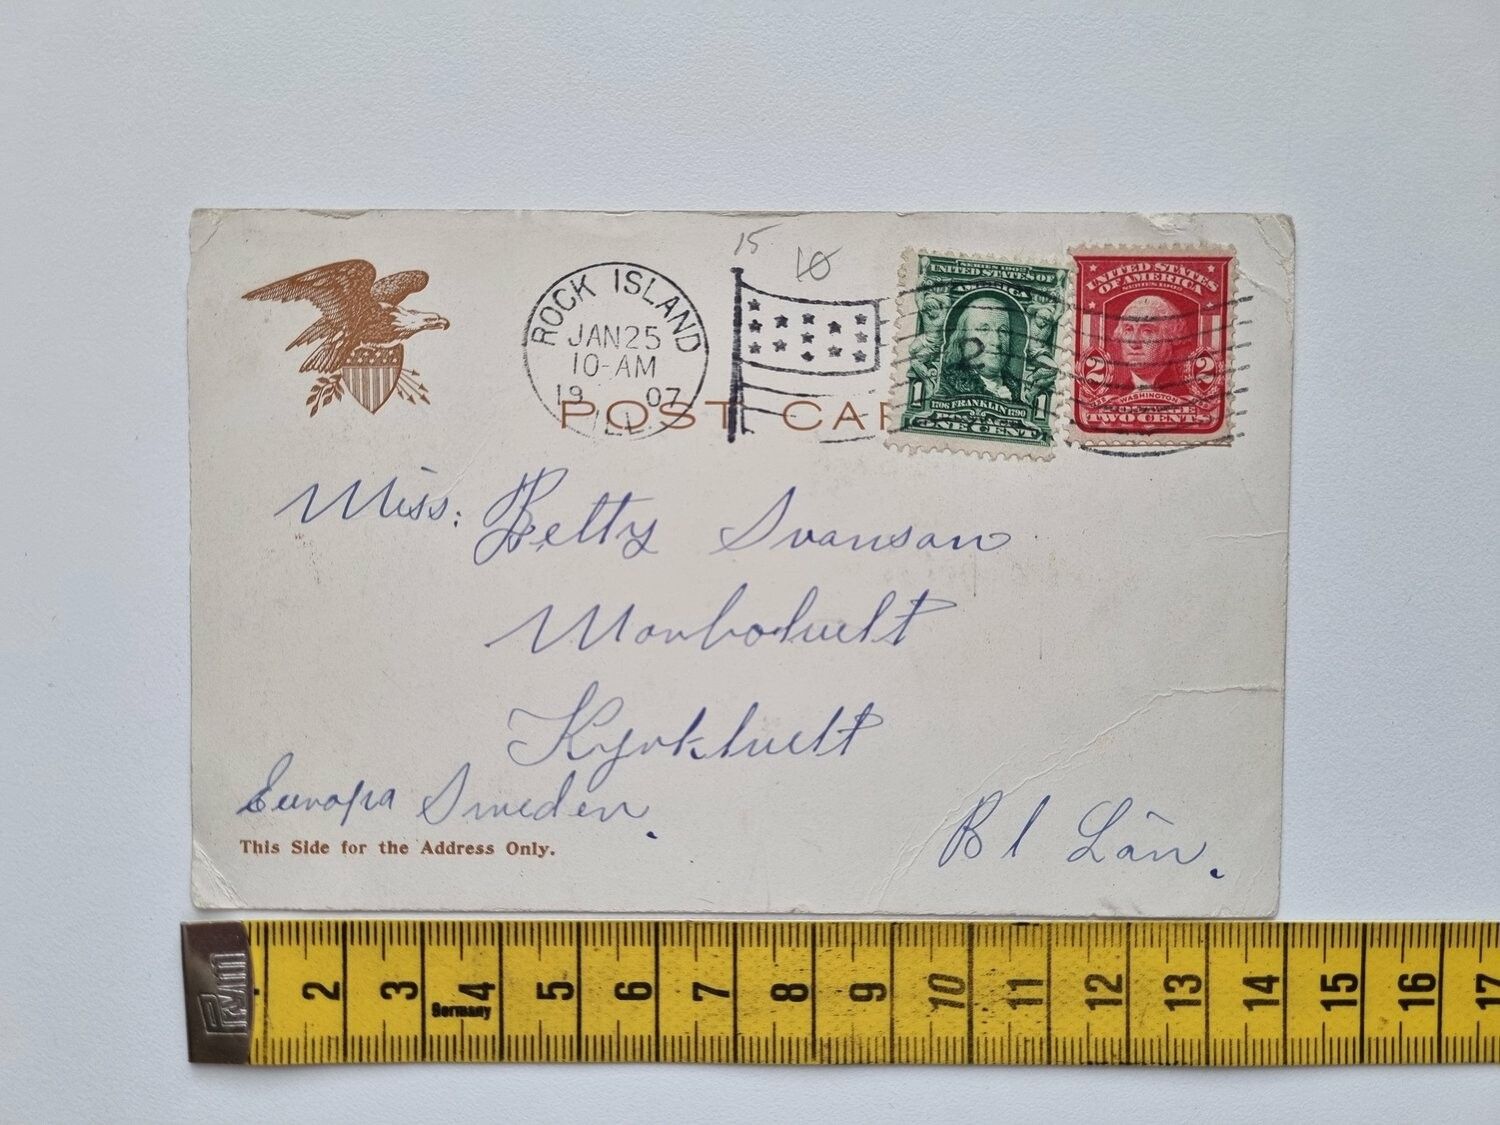 15 10
ROCK ISLAND
JAN 25
10-AM
19 07
ILL.
SERIES 1902
UNITED STATES OF
AMERICA
2
1 1706 FRANKLIN 1790 1
POSTAGE
ONE CENT
UNITED STATES
OF AMERICA
SERIES 1902
2 2
WASHINGTON
TWO CENTS
POST CAR
Miss. Betty Svanson
Monbohult
Kyrkhult
Europa Sweden.
Bl Län.
This Side for the Address Only.
PRYM
2 3 4 5 6 7 8 9 10 11 12 13 14 15 16 17
Germany